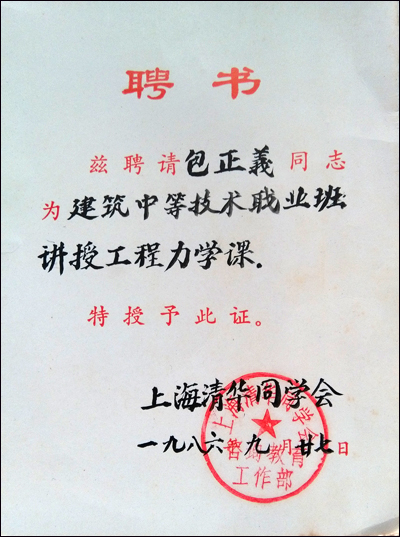 聘书
兹聘请包正義同志
为建筑中等技术职业班
讲授工程力学课.
特授予此证。
上海清华同学会
一九八六年九月廿七日
工作部